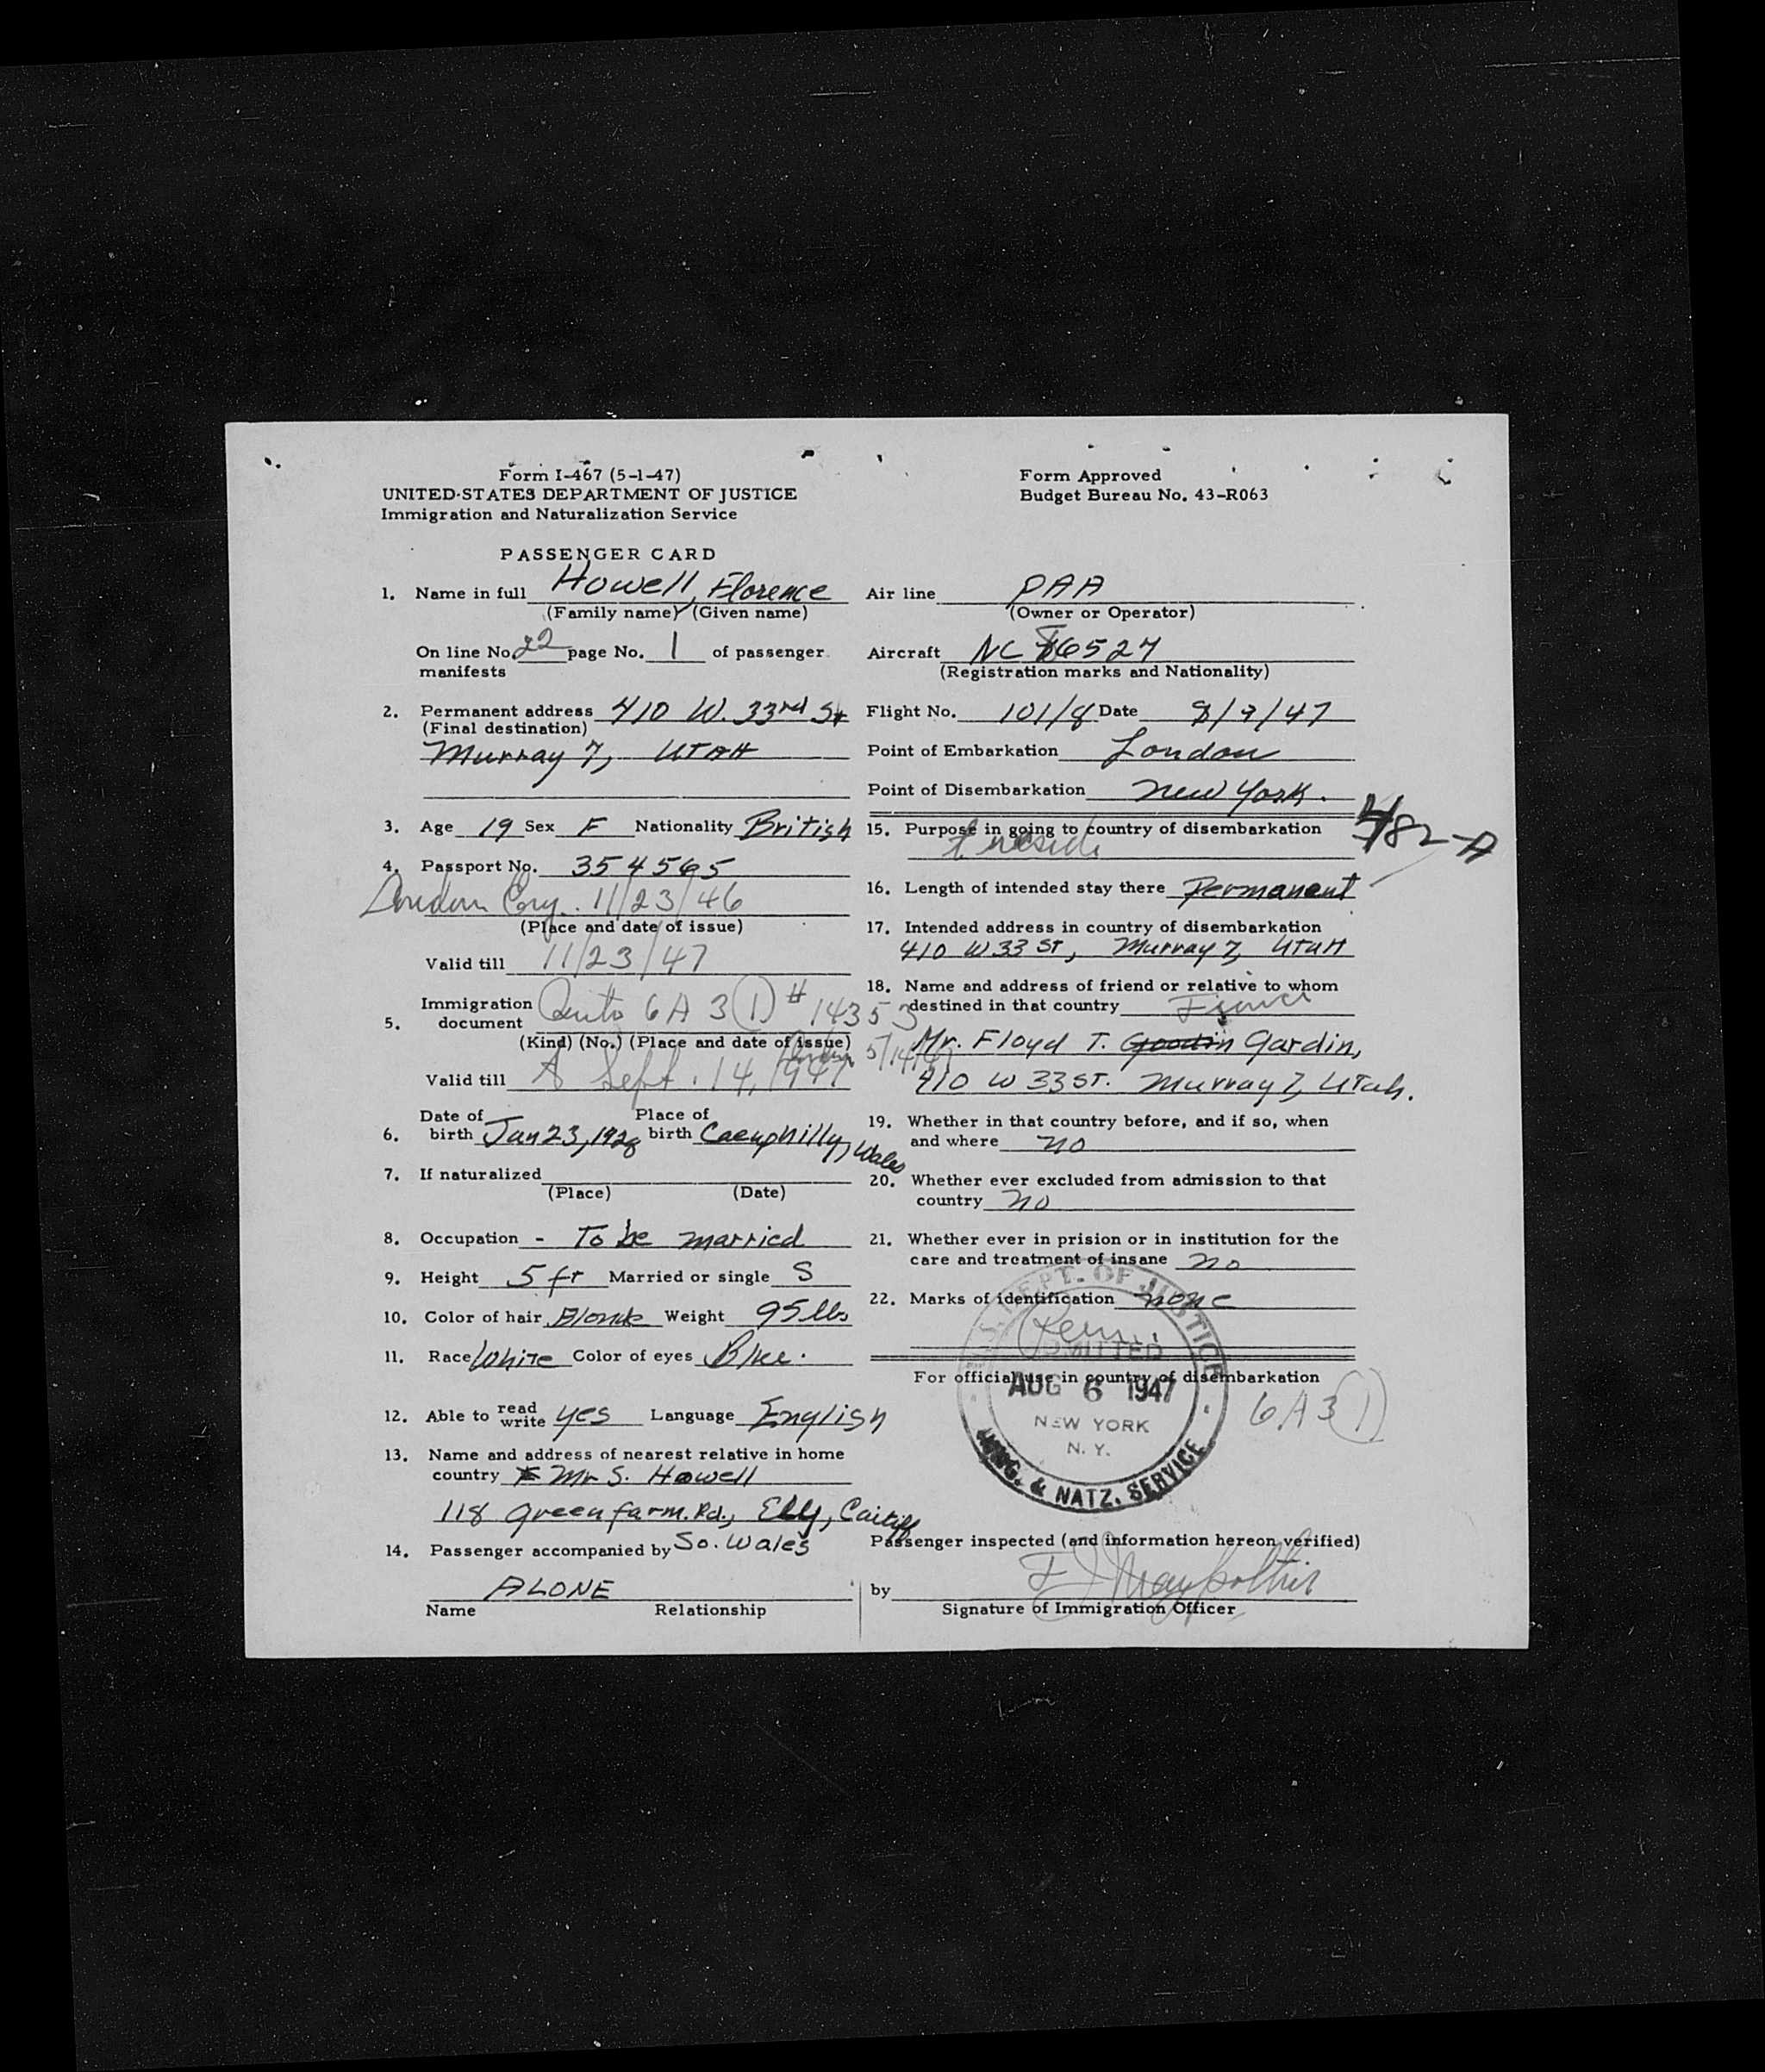 Form I-467 (5-1-47)
UNITED STATES DEPARTMENT OF JUSTICE
Immigration and Naturalization Service
Form Approved
Budget Bureau No. 43-R063
PASSENGER CARD
1. Name in full Howell, Florence
(Family name) (Given name)
On line No. 22 page No. 1 of passenger
manifests
2. Permanent address 410 W. 33rd St
(Final destination)
Murray 7, UTAH
3. Age 19 Sex F Nationality British
4. Passport No. 354565
London 11/23/46
(Place and date of issue)
Valid till 11/23/47
Immigration
5. document Quota 6A3(1) # 14353
(Kind) (No.) (Place and date of issue)
London 5/14/47
Valid till Sept. 14, 1947
Date of Place of
6. birth Jan 23, 1928 birth Caerphilly, Wales
7. If naturalized
(Place) (Date)
8. Occupation - To be married
9. Height 5 ft Married or single S
10. Color of hair Blonde Weight 95 lbs
11. Race White Color of eyes Blue.
12. Able to read write yes Language English
13. Name and address of nearest relative in home
country Mr S. Howell
118 Green farm. Rd., Ely, Cardiff
So. Wales
14. Passenger accompanied by
ALONE
Name Relationship
Air line PAA
(Owner or Operator)
Aircraft NC 86527
(Registration marks and Nationality)
Flight No. 101/8 Date
Point of Embarkation London
Point of Disembarkation New York.
15. Purpose in going to country of disembarkation
to reside
482-A
16. Length of intended stay there Permanent
17. Intended address in country of disembarkation
410 W 33 ST, Murray 7, UTAH
18. Name and address of friend or relative to whom
destined in that country Fiance
Mr. Floyd T. Goodin Gardin,
410 W 33 ST. Murray 7, Utah.
19. Whether in that country before, and if so, when
and where no
20. Whether ever excluded from admission to that
country no
21. Whether ever in prision or in institution for the
care and treatment of insane no
22. Marks of identification none
For official use in country of disembarkation
U.S. DEPT. OF JUSTICE
Perm.
ADMITTED
AUG 6 1947
NEW YORK
N. Y.
IMMIG. & NATZ. SERVICE
6A3(1)
Passenger inspected (and information hereon verified)
by
Signature of Immigration Officer